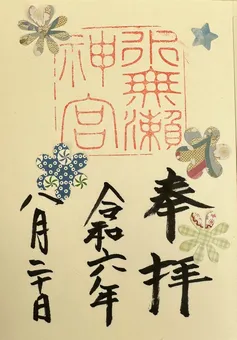 水無瀬
神宮
奉拝
令和六年
八月二十日